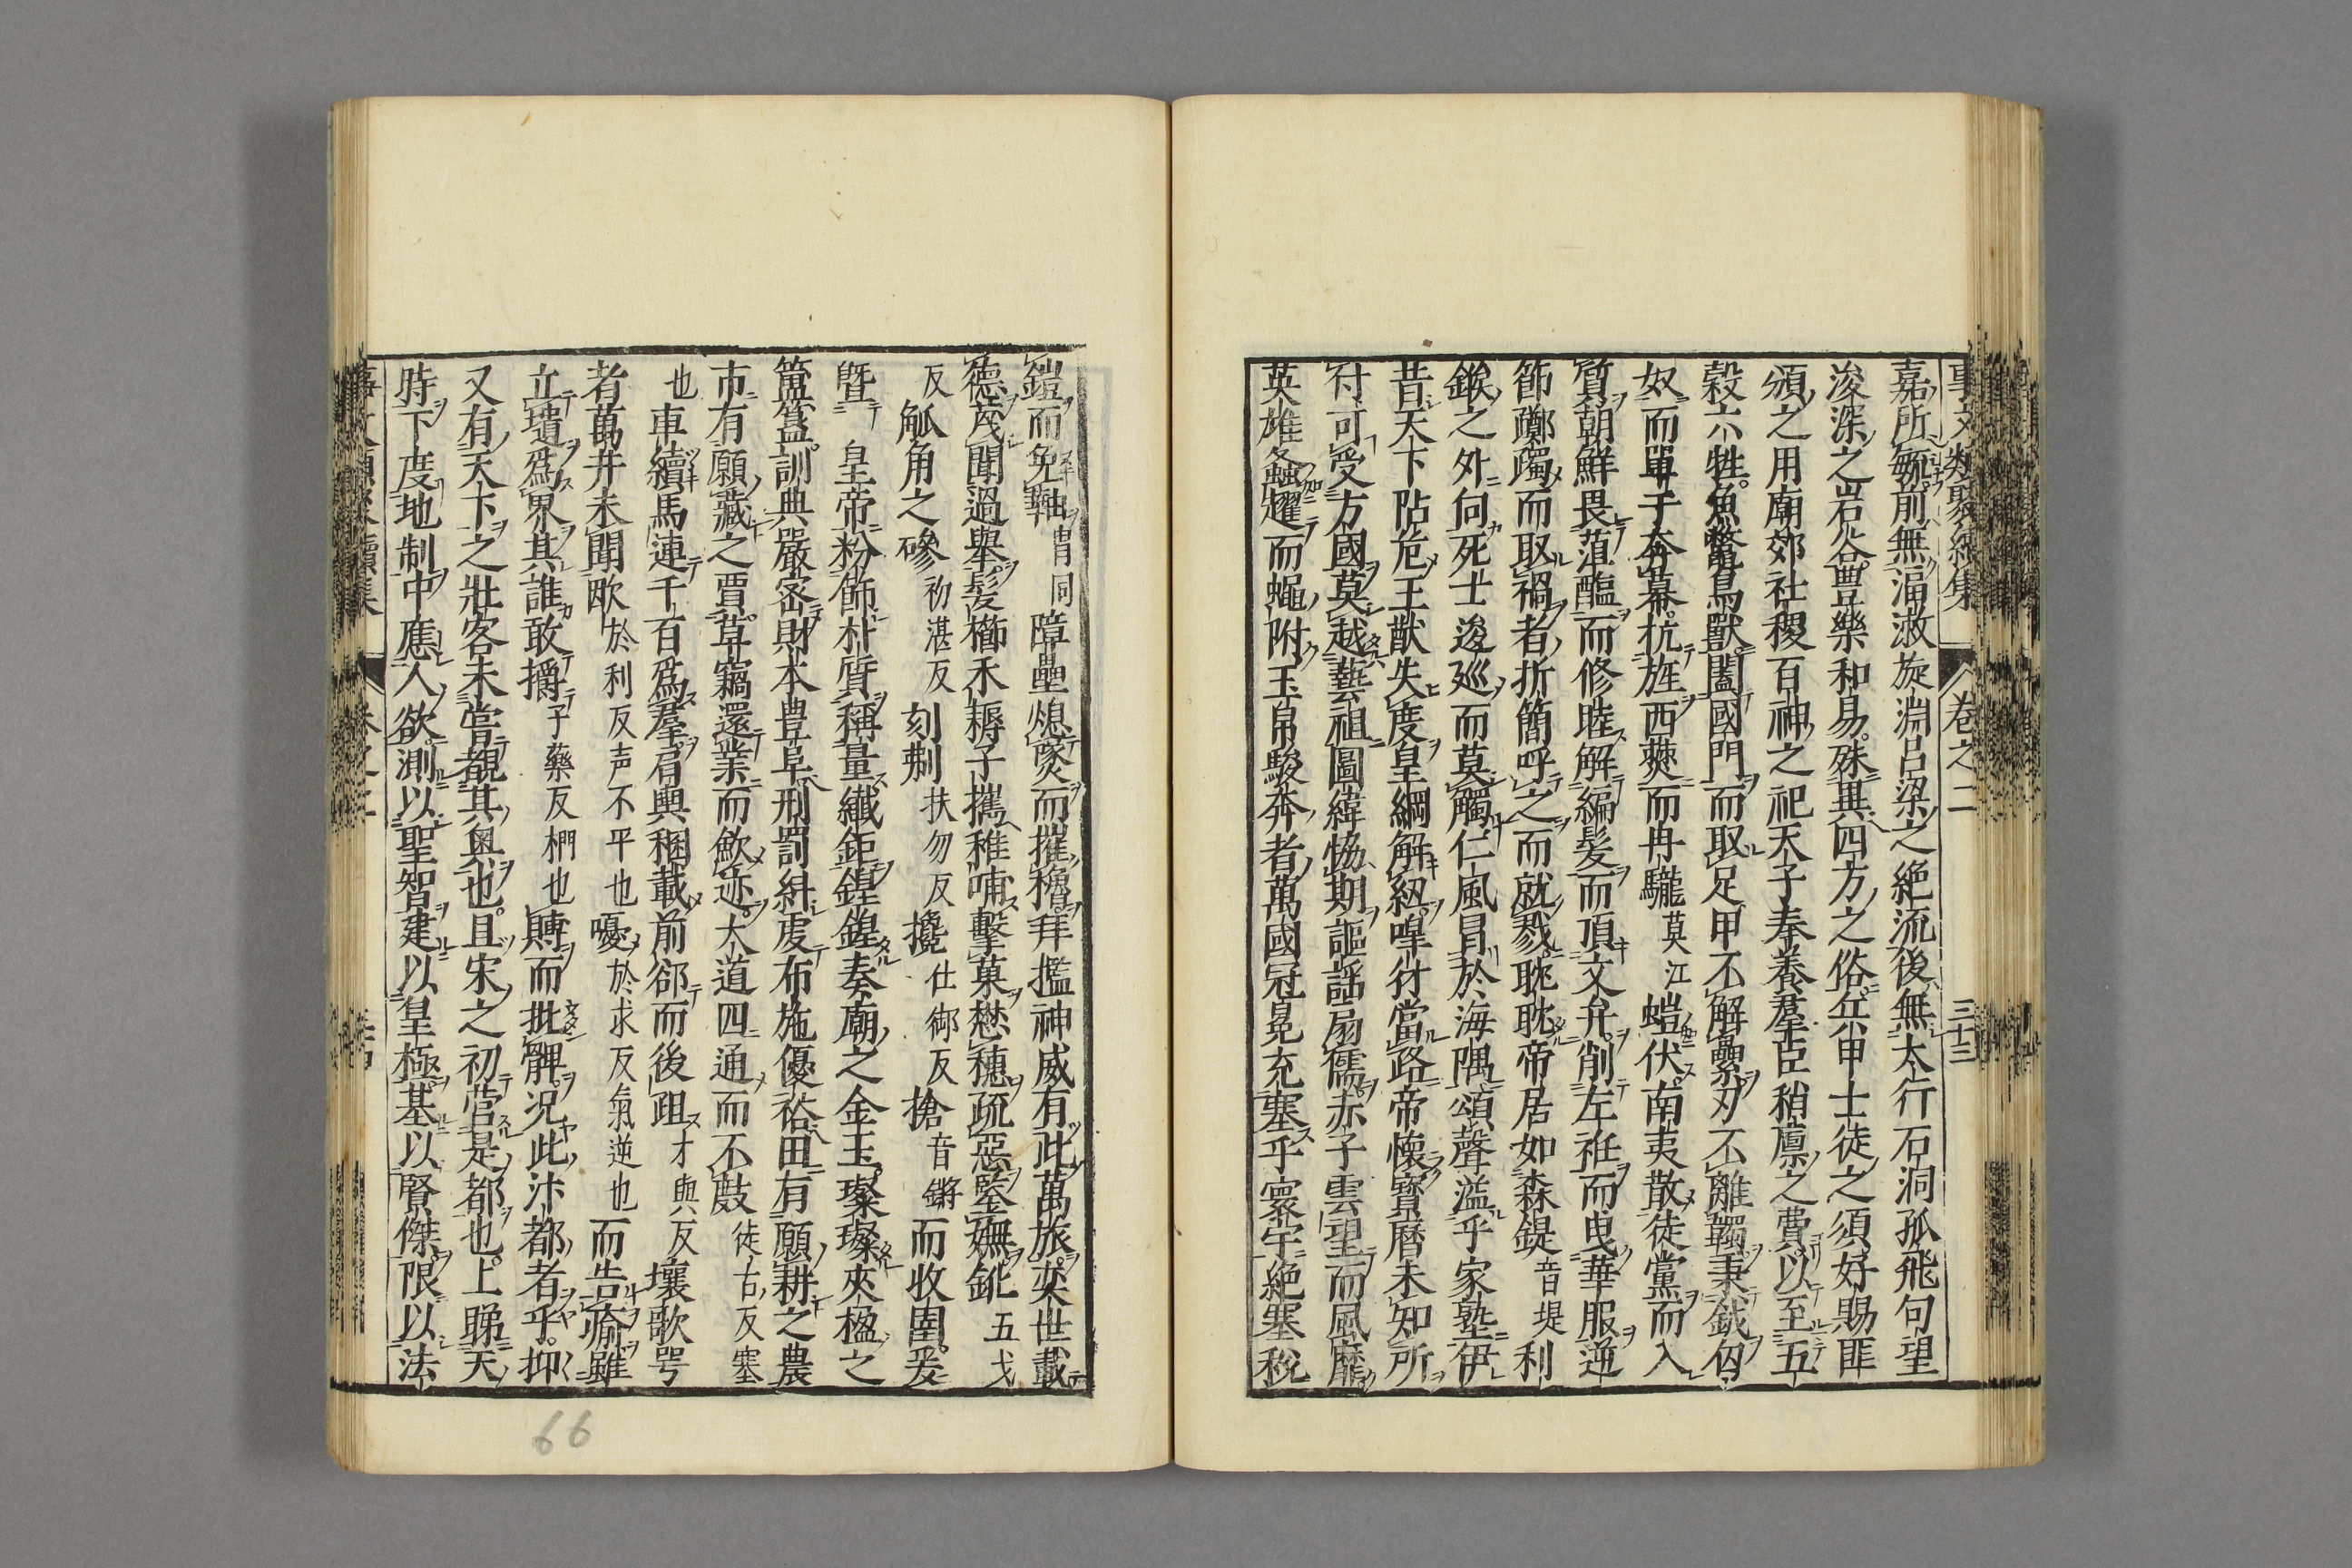 事文類聚續集 卷之二 三十三
嘉所毓前無湢潎旋淵呂梁之絶流後無太行石洞孤飛句望
浚深之岩谷豊樂和易殊異四方之俗兵甲士徒之須好賜匪
頒之用廟郊社稷百神之祀天子奉養羣臣稍廪之費以至五
穀六牲魚鱉鳥獸闔國門而取足甲不解纍刃不離韣秉鉞匈
奴而單于奔幕抗旌西僰而冉駹莫江螘伏南夷散徒黨而入
質朝鮮畏葅醢而修睦解編髪而頂文弁削左衽而曳華服逆
節躑躅而取禍者折簡呼之而就戮眈眈帝居如森鍉音堤利
鍭之外向死士逡廵而莫觸仁風冒於海隅頌聲溢乎家塾伊
昔天下阽危王猷失度皇綱解紐嘷豺當路帝懷寶曆未知所
付可受方國莫越藝祖圖緯恊期謳謡扇儒赤子雲望而風靡
英雄螽趯而蝇附玉帛駿奔者萬國冠冕充塞乎寰宇絶塞税
鎧而免䩜冑同障壘熄燧而摧櫓拜檻神威有此萬旅奕世載
德茂聞過舉髪櫛禾耨子攜稚哺擊菓懋穗疏惡鑒嫵鈋五戈
反觚角之磣初湛反刻剕扶勿反攙仕御反搶音鏘而收圉爰
曁 皇帝粉飾朴質稱量纖鉅鍠鍠奏廟之金玉璨璨夾楹之
簠簋訓典嚴密財本豊阜刑罰紏虔布施優裕田有願耕之農
市有願藏之賈草竊還業而歛迹大道四通而不㱉徒古反塞
也車續馬連千百爲羣肩輿稛載前郤而後跙才與反壤歌咢
者萬井未聞歐於利反声不平也嚘於求反氣逆也而告痛雖
立壝爲界其誰敢擶子藥反椚也賻而批髀況此汴都者乎抑
又有天下之壯客未甞覩其奥也且宋之初營是都也上睇天
時下度地制中應人欲測以聖智建以皇極基以賢傑限以法